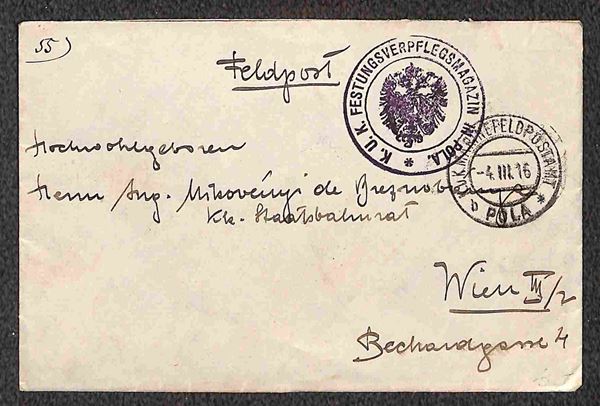 55)
Feldpost
K. U. K. FESTUNGSVERPFLEGSMAGAZIN IN POLA. *
K.U.K. MARINEFELDPOSTAMT
-4.III.16
b POLA *
Hochwohlgeboren
Herrn Ing. Mikovényi de Breznob
Kk. Staatsbahnrat
Wien III/2
Bechardgasse 4